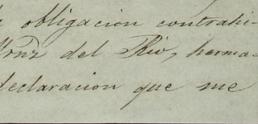 obligacion contrahi-
del Rio, herma-
declaracion que me